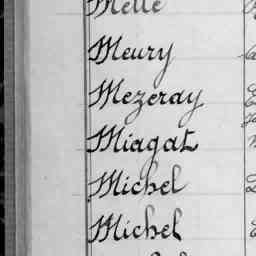 Melle
Meury
Mezeray
Miagat
Michel
Michel